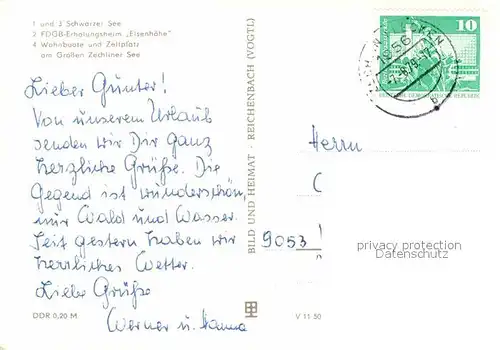 1 und 3 Schwarzer See
2 FDGB-Erholungsheim „Eisenhöhe"
4 Wohnboote und Zeltplatz
am Großen Zechliner See
Lieber Günter!
Von unserem Urlaub
senden wir Dir ganz
herzliche Grüße. Die
Gegend ist wunderschön,
nur Wald und Wasser.
Seit gestern haben wir
herrliches Wetter.
Liebe Grüße
Werner u.
DDR 0,20 M
BILD UND HEIMAT · REICHENBACH (VOGTL)
V 11 50
10
DEUTSCHE DEMOKRATISCHE REPUBLIK
1956
Herrn
9053
privacy protection
Datenschutz